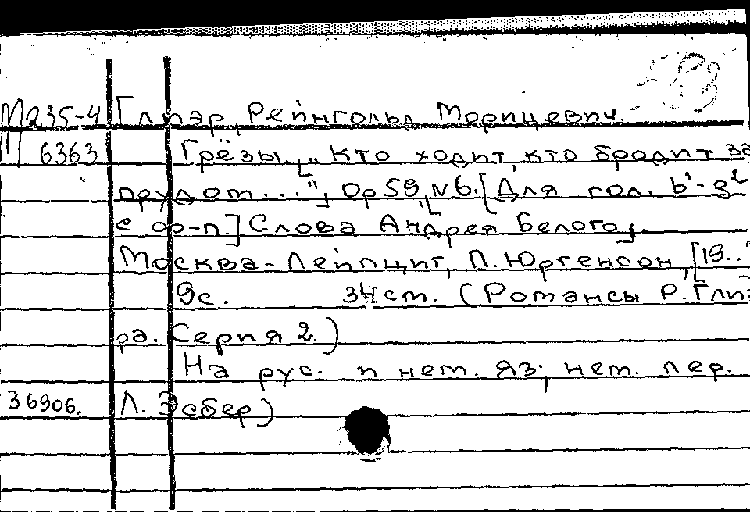 М235-4 Глиэр, Рейнгольд Морицевич.
П 6363 Грёзы. ["Кто ходит, кто бродит за
прудом..."], ор 59, №6. [Для гол. b¹-g²
с ф-п.] Слова Андрея Белого].
Москва-Лейпциг, П. Юргенсон, [19..
9с. 34см. (Романсы Р. Глиэ
ра. Серия 2.)
На рус. и нем. яз., нем. пер.
36906. Л. Эсбер)